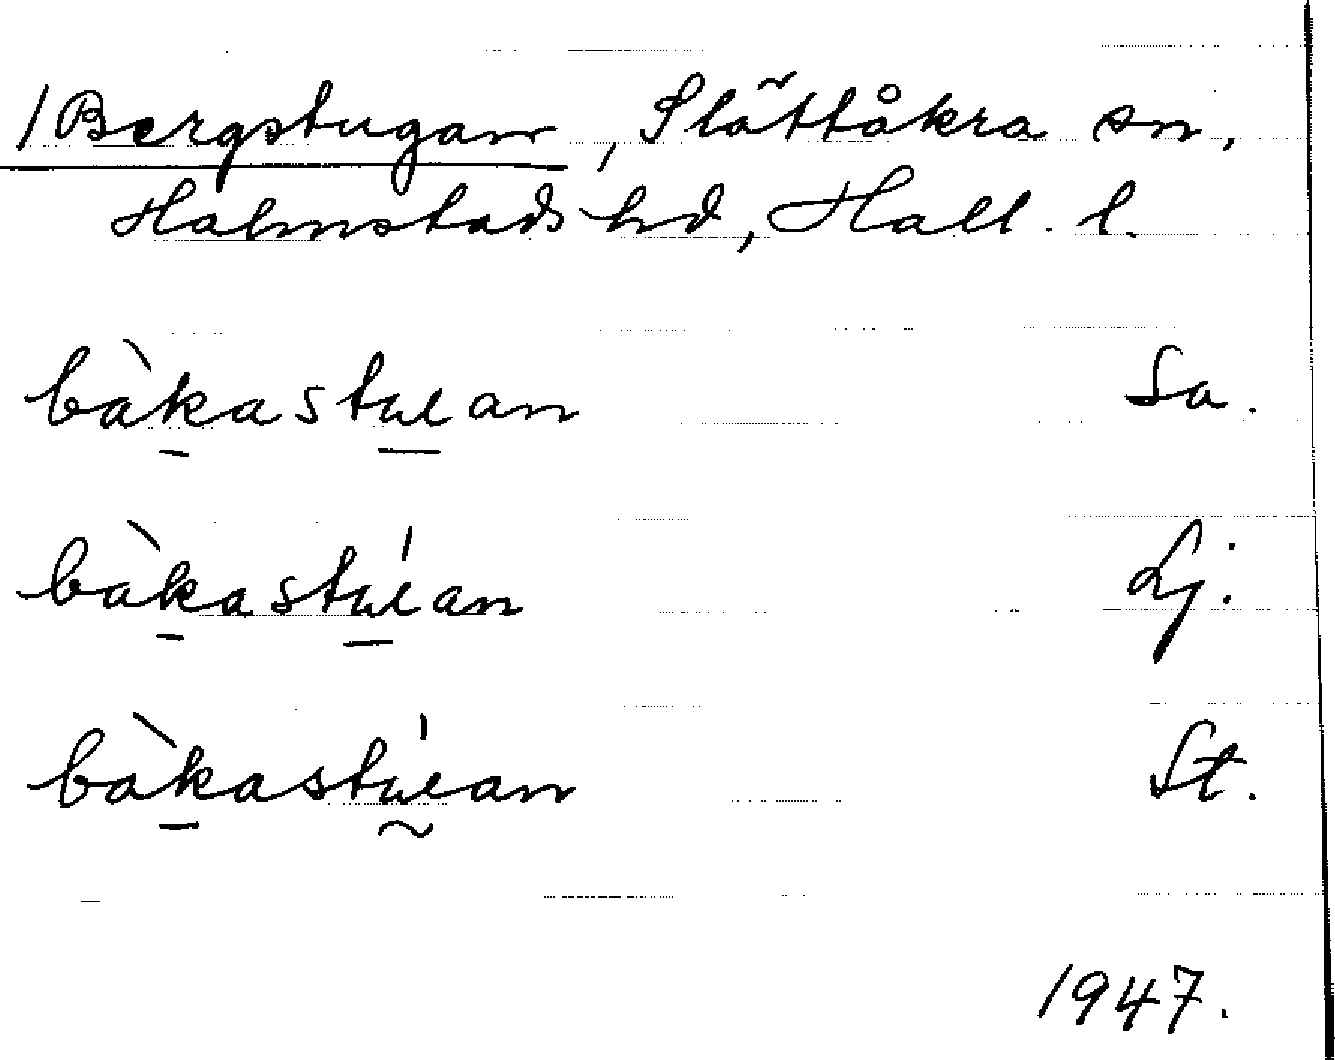 /Bergstugan, Slättåkra sn,
Halmstads hd, Hall. l.
bàkastuean Sa.
bàkastuéan Lj.
bàkastuéan St.
1947.